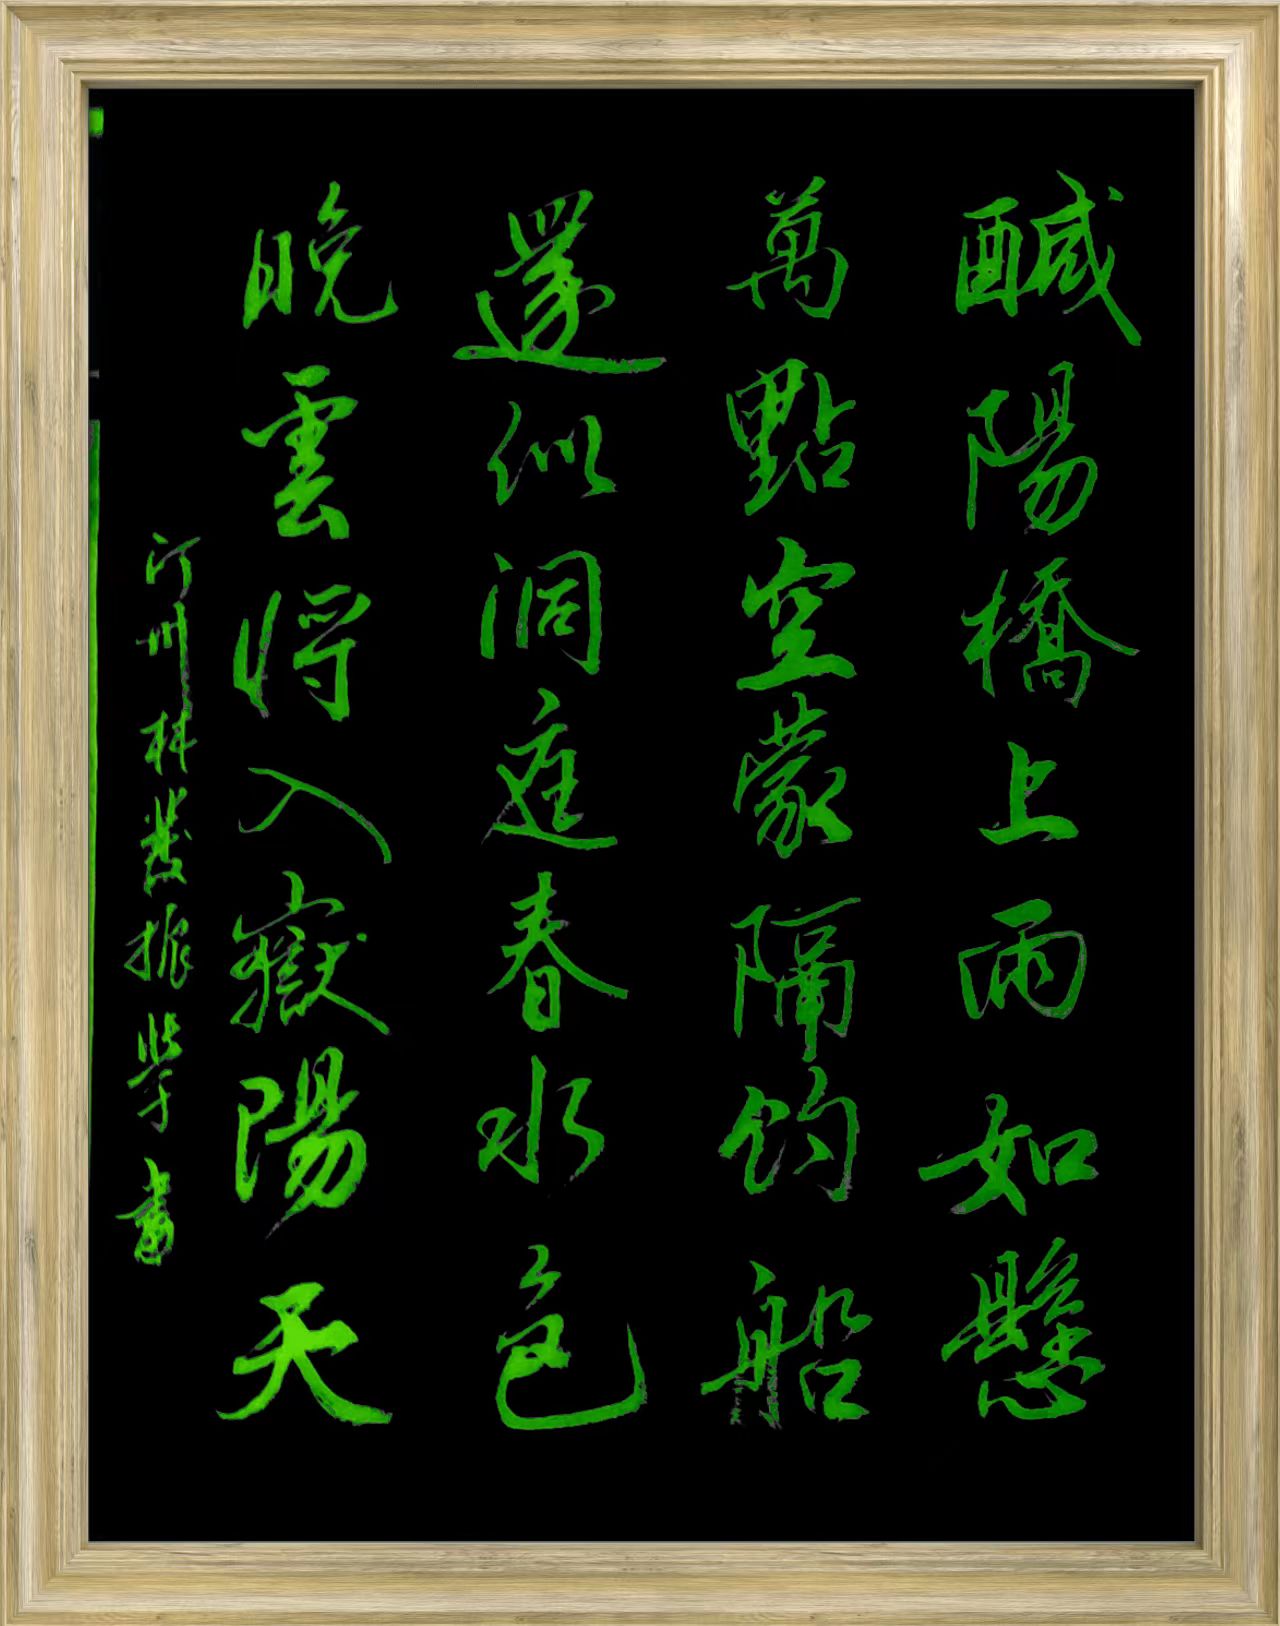 醎陽橋上雨如懸
萬點空蒙隔釣船
還似洞庭春水色
晚雲将入嶽陽天
汀州林發振學書